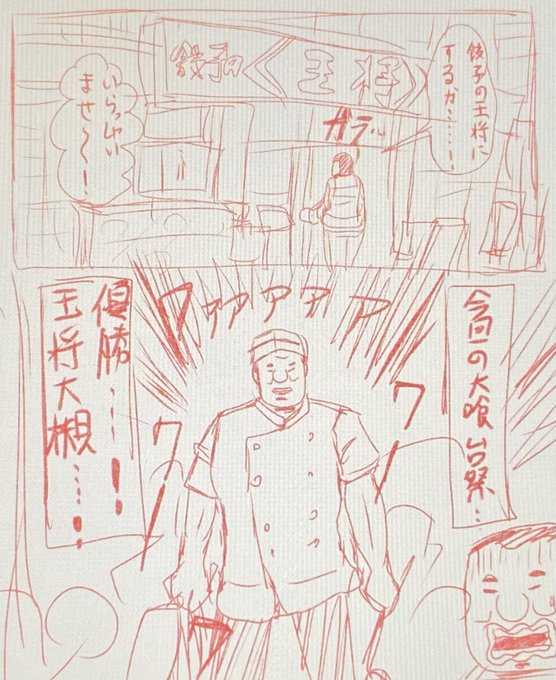 餃子の王将に
するか……!
餃子の
王将
ガラッ
いらっしゃい
ませ〜!
今回の大喰い祭…
ワァァァァァァ
ワー
優勝……!
王将大槻……!
ワー
ワ